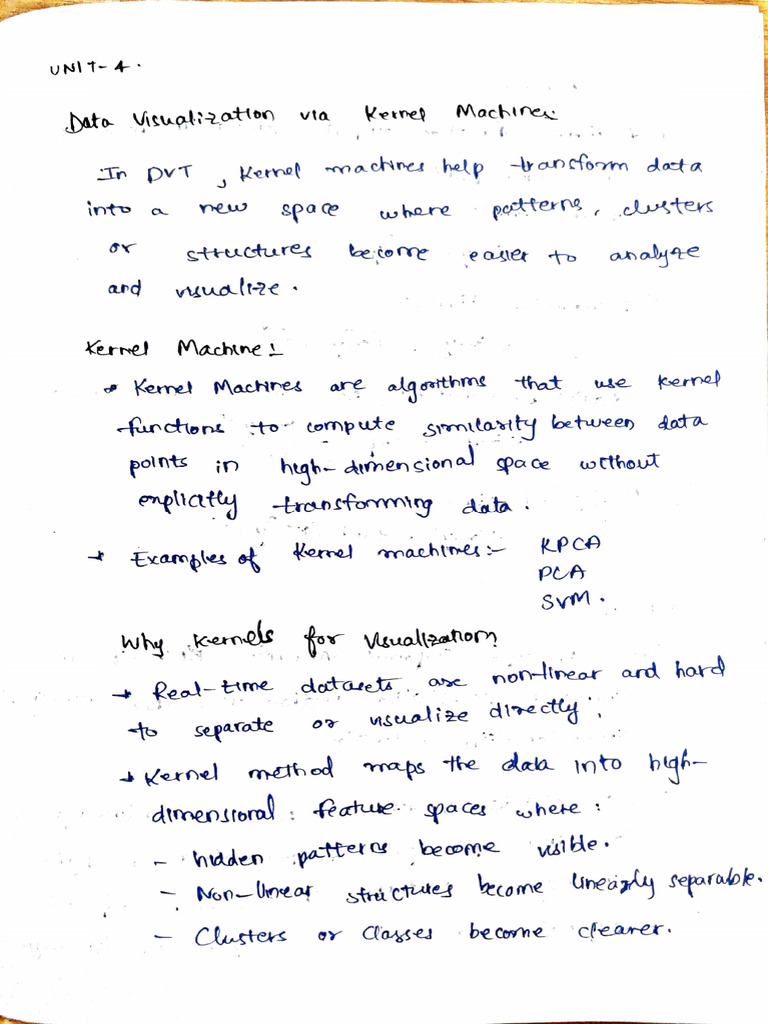 UNIT-4.
Data Visualization via Kernel Machines:
In DVT, Kernel machines help transform data
into a new space where patterns, clusters
or structures become easier to analyze
and visualize.
Kernel Machine:
→ Kernel Machines are algorithms that use kernel
functions to compute similarity between data
points in high-dimensional space without
explicitly transforming data.
→ Examples of Kernel machines:- KPCA
PCA
SVM.
Why Kernels for Visualization?
→ Real-time datasets are non-linear and hard
to separate or visualize directly.
→ Kernel method maps the data into high-
dimensional feature spaces where:
- hidden patterns become visible.
- Non-linear structures become linearly separable.
- Clusters or Classes become clearer.